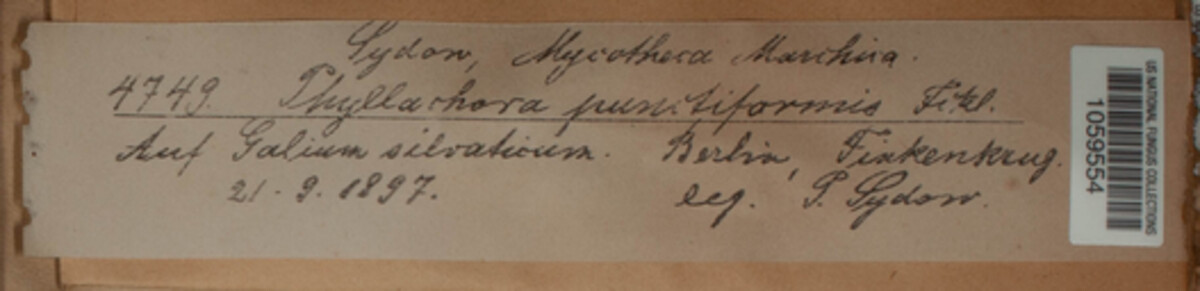 Sydow, Mycotheca Marchica.
4749. Phyllachora punctiformis Fckl.
Auf Galium silvaticum. Berlin, Finkenkrug.
21. 9. 1897. leg. P. Sydow.
US NATIONAL FUNGUS COLLECTIONS
1059554